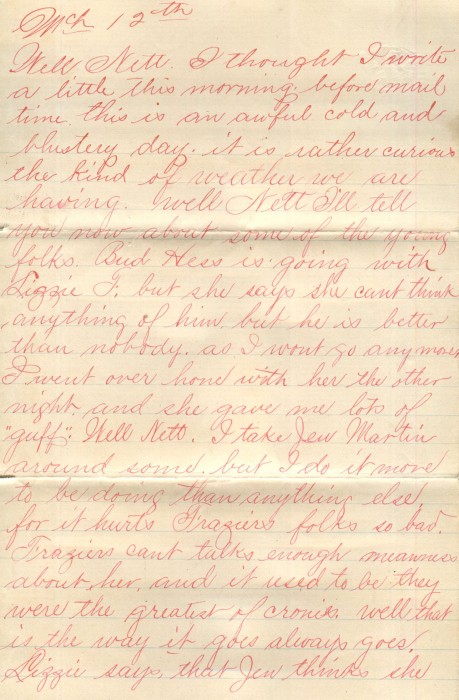 Mch 12th
Well Nett. I thought I write
a little this morning. before mail
time. this is an awful cold and
blustery day. it is rather curious
the kind of weather we are
having. Well Nett I'll tell
you now about some of the young
folks. Bud Hess is going with
Lizzie F. but she says she cant think
anything of him. but he is better
than nobody. as I wont go anymore
I went over home with her the other
night. and she gave me lots of
"guff". Well Nett. I take Jen Martin
around some. but I do it more
to be doing than anything else
for it hurts Fraziers folks so bad.
Fraziers cant talk enough meanness
about her, and it used to be they
were the greatest of cronies. well that
is the way it goes always goes.
Lizzie says, that Jen thinks she